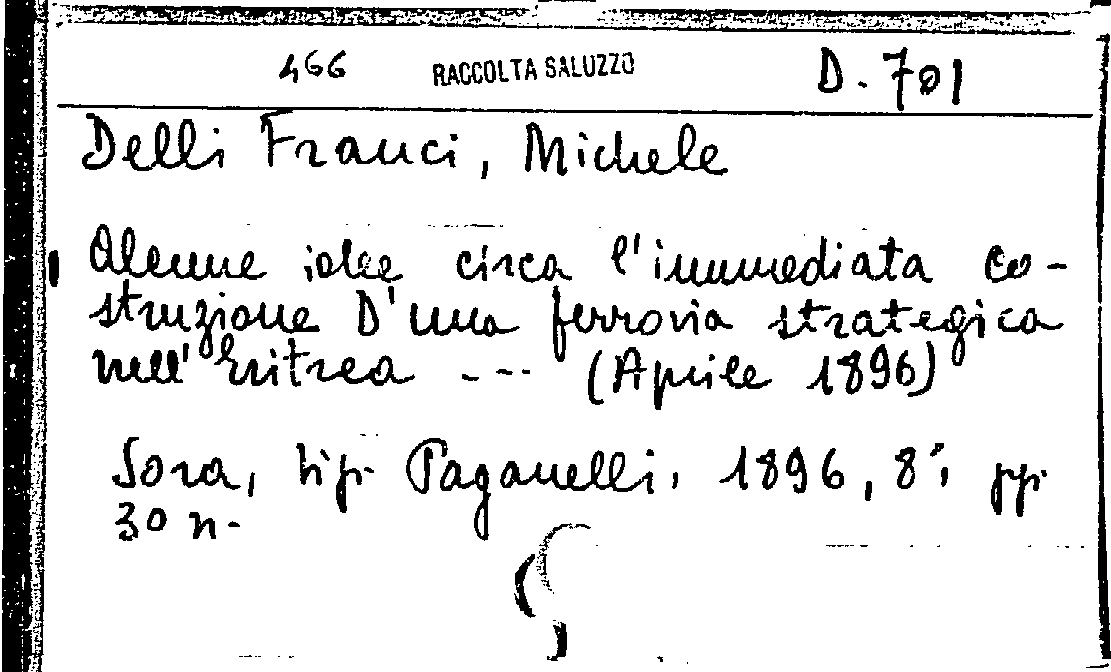 466 RACCOLTA SALUZZO D. 701
Delli Franci, Michele
Alcune idee circa l'immediata co-
struzione D'una ferrovia strategica
nell'Eritrea --- (Aprile 1896)
Sora, tip. Paganelli, 1896, 8°, pp.
30 n.